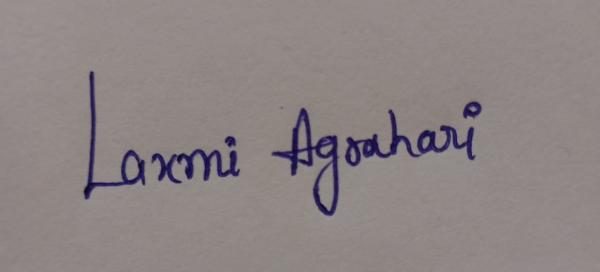 Laxmi Agrahari